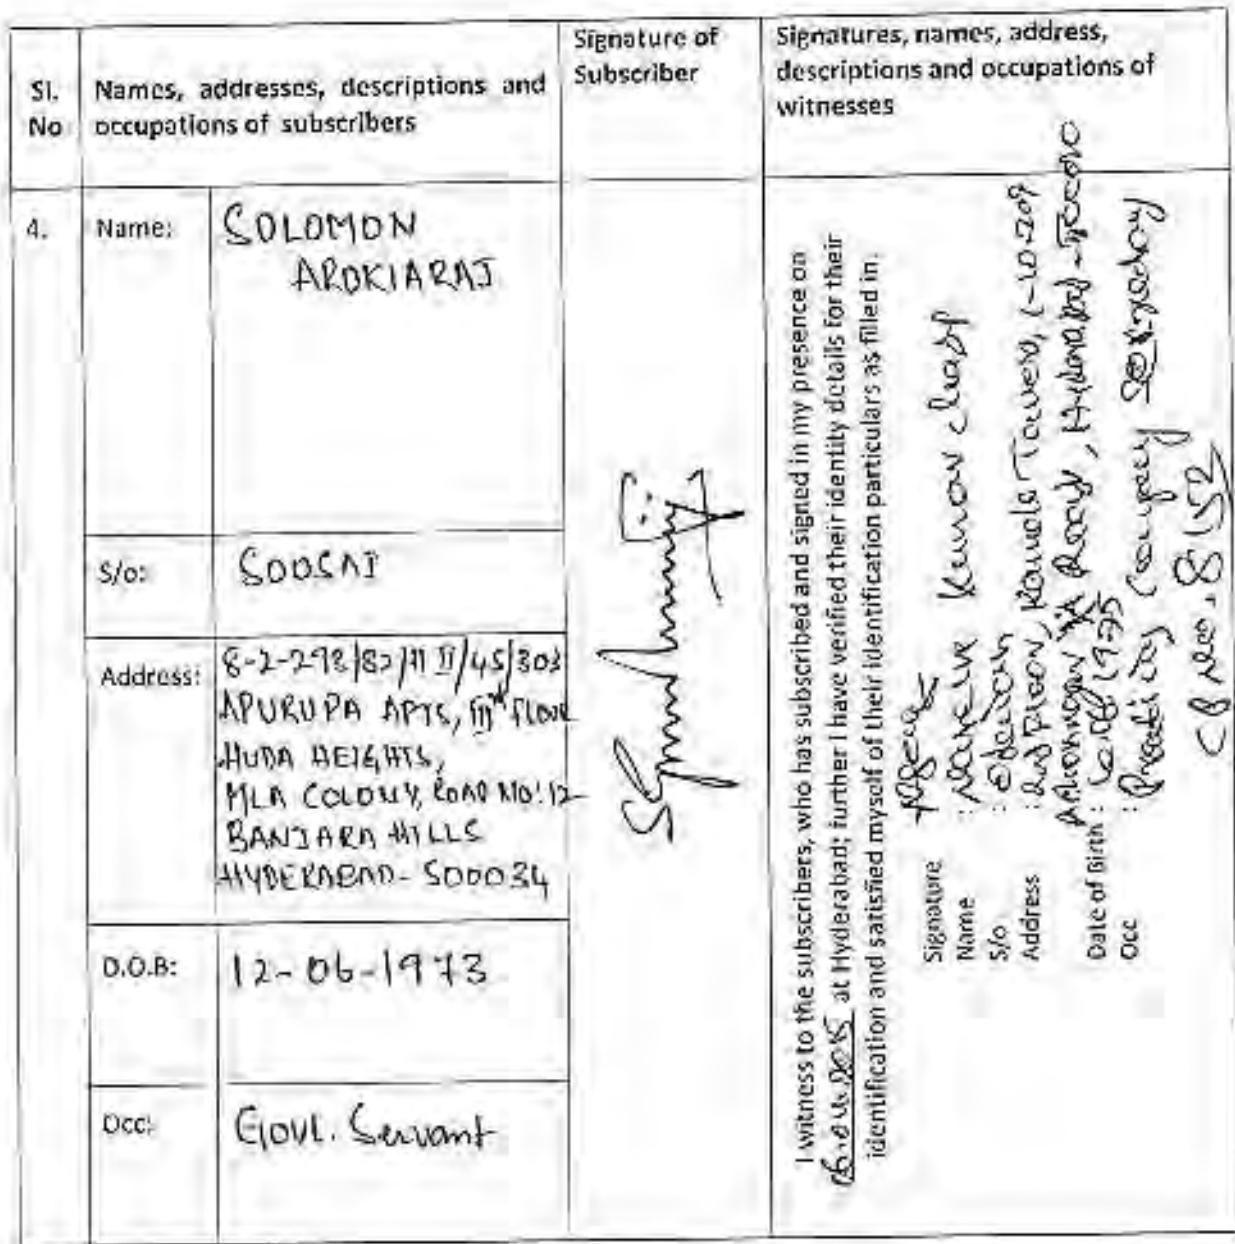 Sl.
No
Names, addresses, descriptions and
occupations of subscribers
Signature of
Subscriber
Signatures, names, address,
descriptions and occupations of
witnesses
4.
Name:
SOLOMON
AROKIARAJ
S/o:
SOOSAI
Address:
8-2-298/82/H II/45/303
APURUPA APTS, III FLOOR
HUDA HEIGHTS,
MLA COLONY, ROAD NO: 12
BANJARA HILLS
HYDERABAD- 500034
D.O.B:
12-06-1973
Occ:
Govt. Servant
I witness to the subscribers, who has subscribed and signed in my presence on
at Hyderabad; further I have verified their identity details for their
identification and satisfied myself of their identification particulars as filled in.
Signature
Name : Kumar
S/o :
Address : Towers, 1-10-209
Road, Hyderabad
Date of Birth : 1975
Occ : Practicing Company Secretary
CP No. 8152